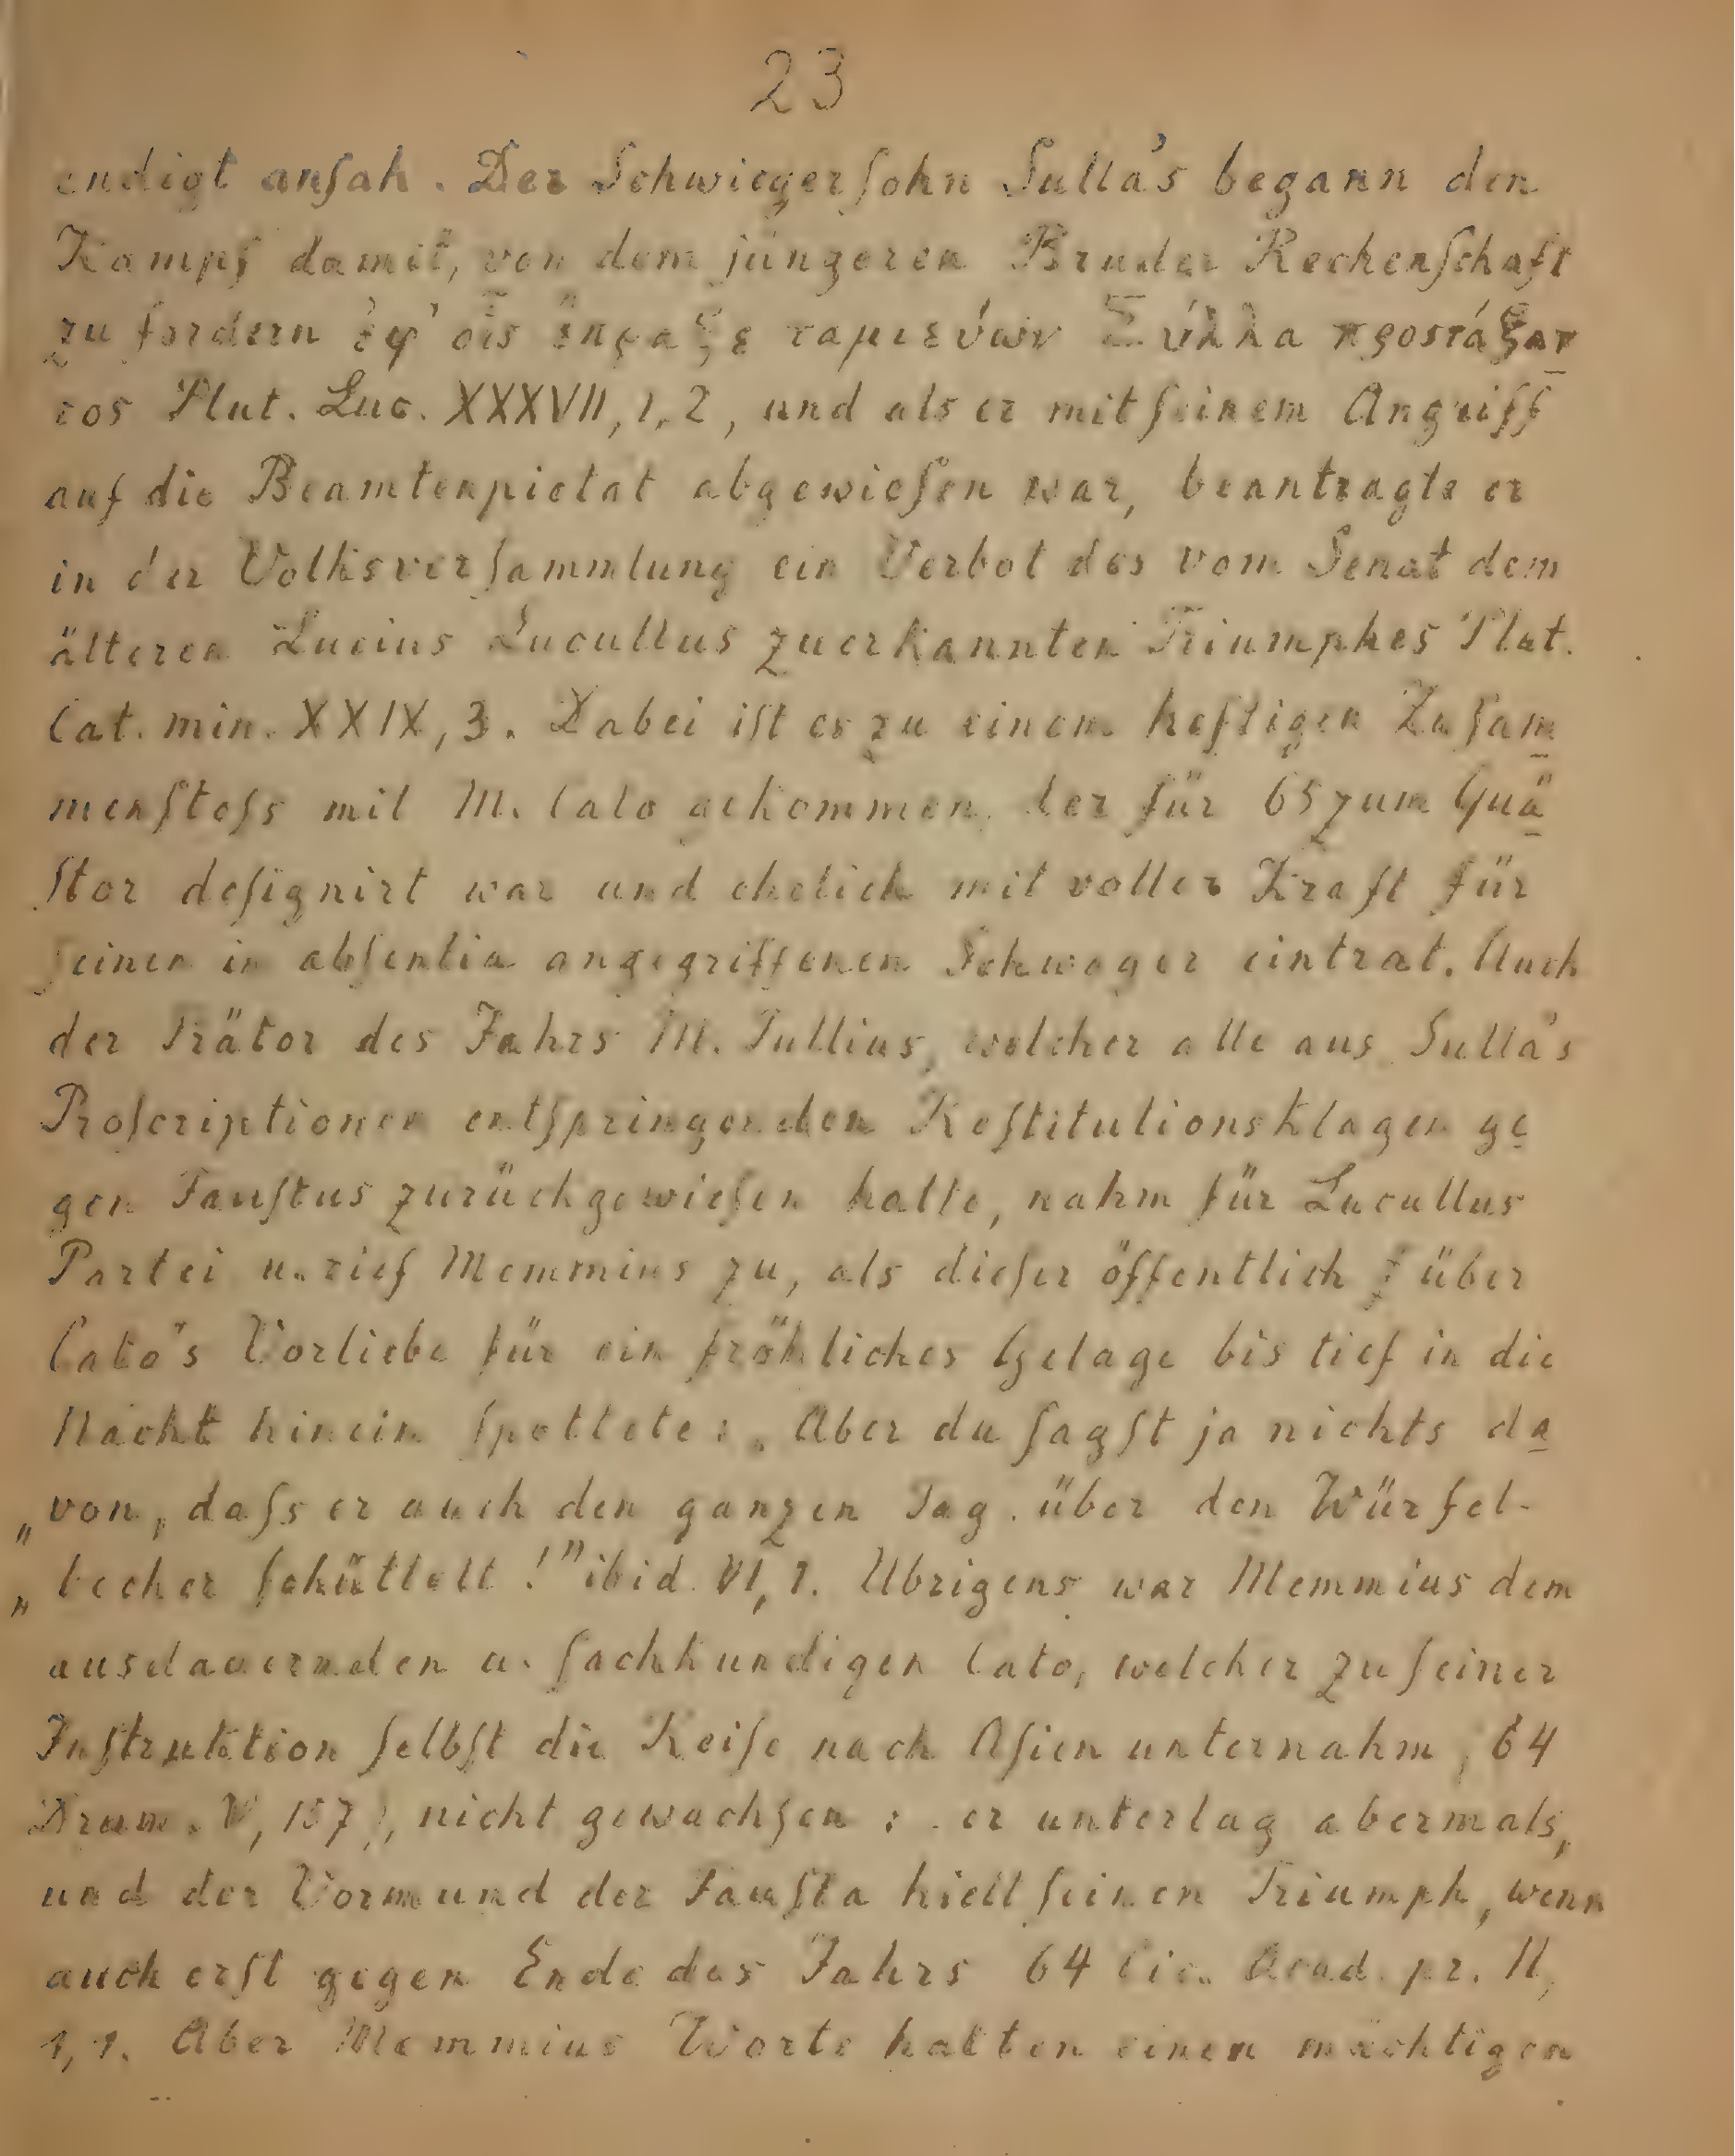 23
endigt anſah. Der Schwiegerſohn Sulla's begann den
Kampf damit, von dem jüngeren Bruder Rechenſchaft
zu fordern ἐφ' οἷς ἔπραξε ταμιεύων Σύλλα προστάξαν
τος Plut. Luc. XXXVII, 1, 2, und als er mit ſeinem Angriff
auf die Beamtenpietat abgewieſen war, beantragte er
in der Volksverſammlung ein Verbot des vom Senat dem
älteren Lucius Lucullus zuerkannten Triumphes Plut.
Cat. min. XXIX, 3. Dabei iſt es zu einem heftigen Zuſam
menſtoſs mit M. Cato gekommen, der für 65 zum Quä
ſtor deſignirt war und ehelich mit voller Kraft für
ſeinen in abſentia angegriffenen Schwager eintrat. Auch
der Prätor des Jahrs M. Tullius, welcher alle aus Sulla's
Proſcriptionen entſpringenden Reſtitutionsklagen ge
gen Fauſtus zurückgewieſen hatte, nahm für Lucullus
Partei u. rief Memmius zu, als dieſer öffentlich über
Cato's Vorliebe für ein fröhliches Gelage bis tief in die
Nacht hinein ſpottete: „Aber du ſagſt ja nichts da
„von, daſs er auch den ganzen Tag über den Würfel-
„becher ſchüttelt!" ibid. VI, 1. Ubrigens war Memmius dem
ausdauernden u. ſachkundigen Cato, welcher zu ſeiner
Inſtruktion ſelbſt die Reiſe nach Aſien unternahm, 64
Drum. V, 157), nicht gewachſen: er unterlag abermals,
und der Vormund der Fauſta hielt ſeinen Triumph, wenn
auch erſt gegen Ende des Jahrs 64 Cic. Acad. pr. II,
1, 1. Aber Memmius Worte hatten einen mächtigen